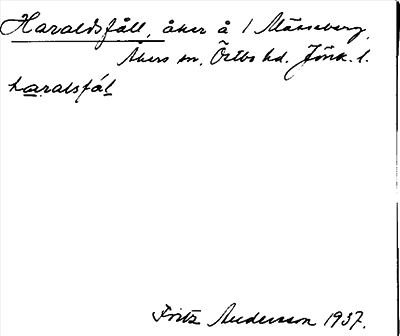 Haraldsfåll, åker å 1 Mässeberg,
Åkers sn. Östbo hd. Jönk. l.
haralsfál
Fritz Andersson 1937.